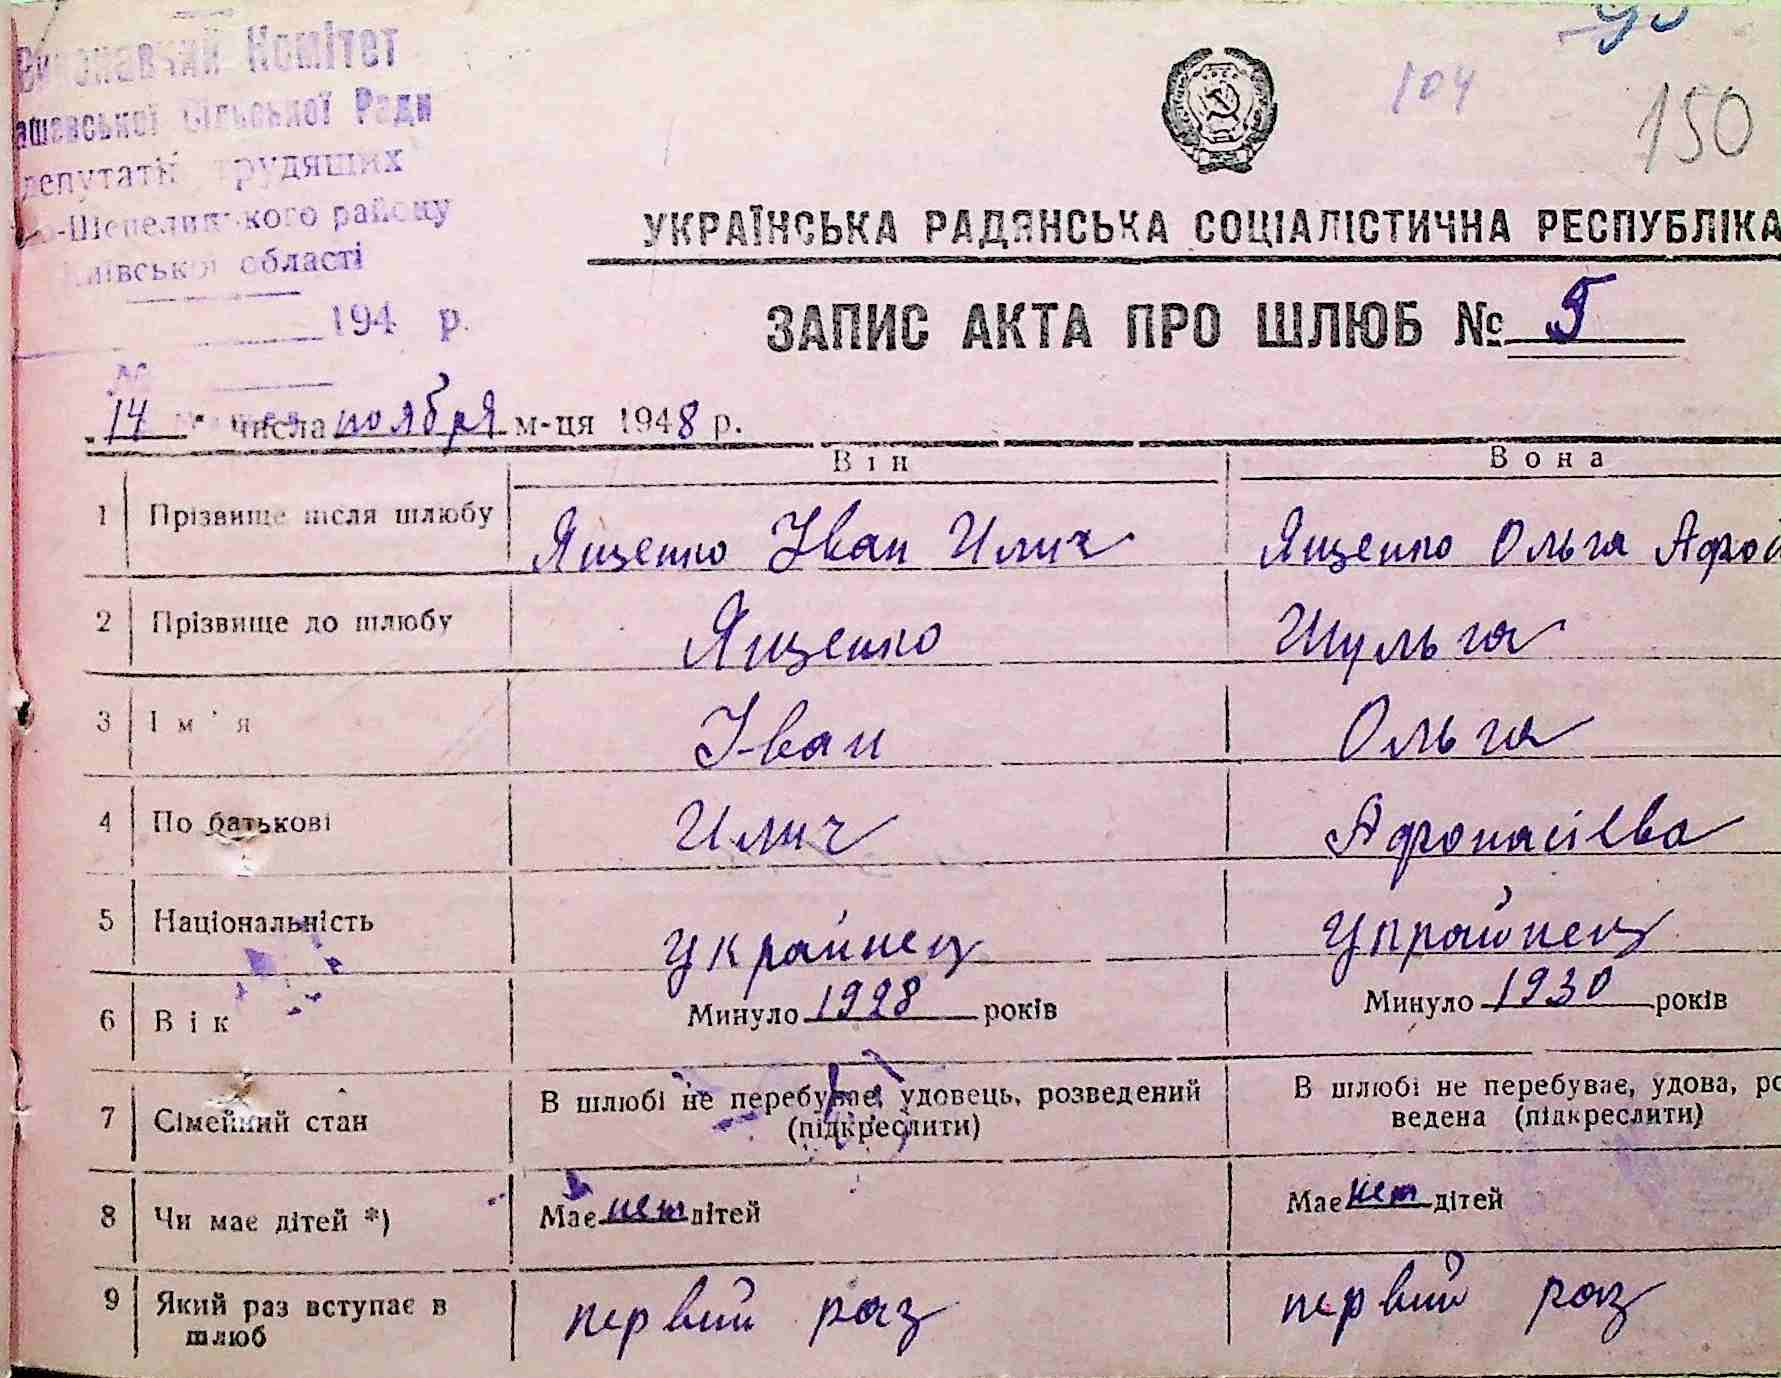 Виконавчий Комітет
ашевської Сільської Ради
депутатів трудящих
о-Шепелицького району
Київської області
194 р.
104
150
УКРАЇНСЬКА РАДЯНСЬКА СОЦІАЛІСТИЧНА РЕСПУБЛІКА
ЗАПИС АКТА ПРО ШЛЮБ № 5
№
"14" числа ноября м-ця 1948 р.
Він Вона
1 Прізвище після шлюбу Ященко Іван Илич Ященко Ольга Афо
2 Прізвище до шлюбу Ященко Шульга
3 Ім'я Іван Ольга
4 По батькові Илич Афонасієва
5 Національність Украйнец Украйнец
6 Вік Минуло 1928 років Минуло 1930 років
7 Сімейний стан В шлюбі не перебуває, удовець, розведений (підкреслити) В шлюбі не перебуває, удова, ро
ведена (підкреслити)
8 Чи має дітей *) Має нет дітей Має нет дітей
9 Який раз вступає в шлюб первий раз первий раз